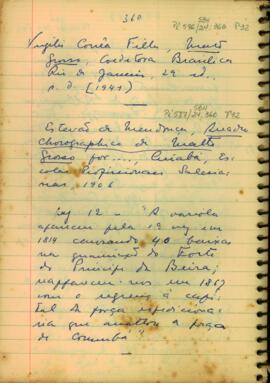 360
SBH
Pi 586/24.360 P32
Virgilio Corrêa Filho, Matto
Grosso, Coeditora Brasilica
Rio de Janeiro, 2ª ed.
s. d. [1941]
SBH
Pi 587/24.360 P32
Estevão de Mendonça, Quadro
Chorographico de Matto
Grosso por..., Cuiabá, Es
colas Profissionaes Salesia
nas, 1906
pag 12 - "A variola
appareceu pela 1ª vez em
1819 causando 40 baixas
na guarnição do Forte
do Principe da Beira;
reappareceu-nos em 1867
com o regresso á capi
tal da força expediciona
ria que assaltou a praça
de Corumbá"